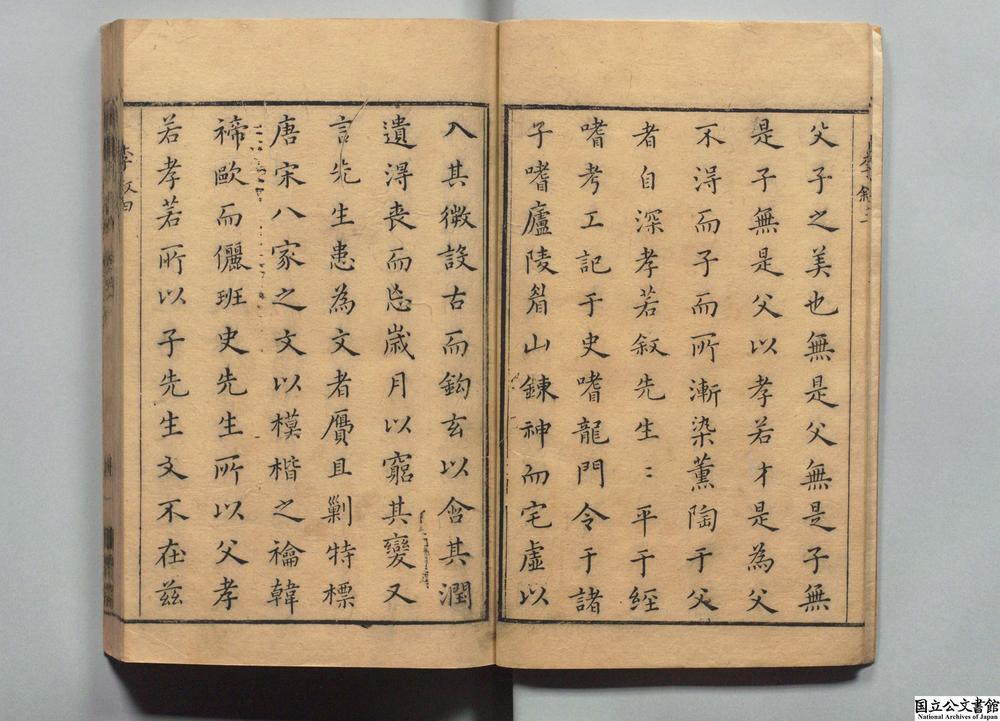 父子之美也無是父無是子無
是子無是父以孝若才是為父
不得而子而所漸染薰陶于父
者自深孝若叙先生〻平于經
嗜考工記于史嗜龍門令于諸
子嗜廬陵眉山鍊神而宅虛以
入其微設古而鈎玄以含其潤
遺得丧而忘歲月以窮其變又
言先生患為文者贋且剿特標
唐宋八家之文以模楷之禴韓
禘歐而儷班史先生所以父孝
若孝若所以子先生文不在兹
李叙四
国立公文書館
National Archives of Japan